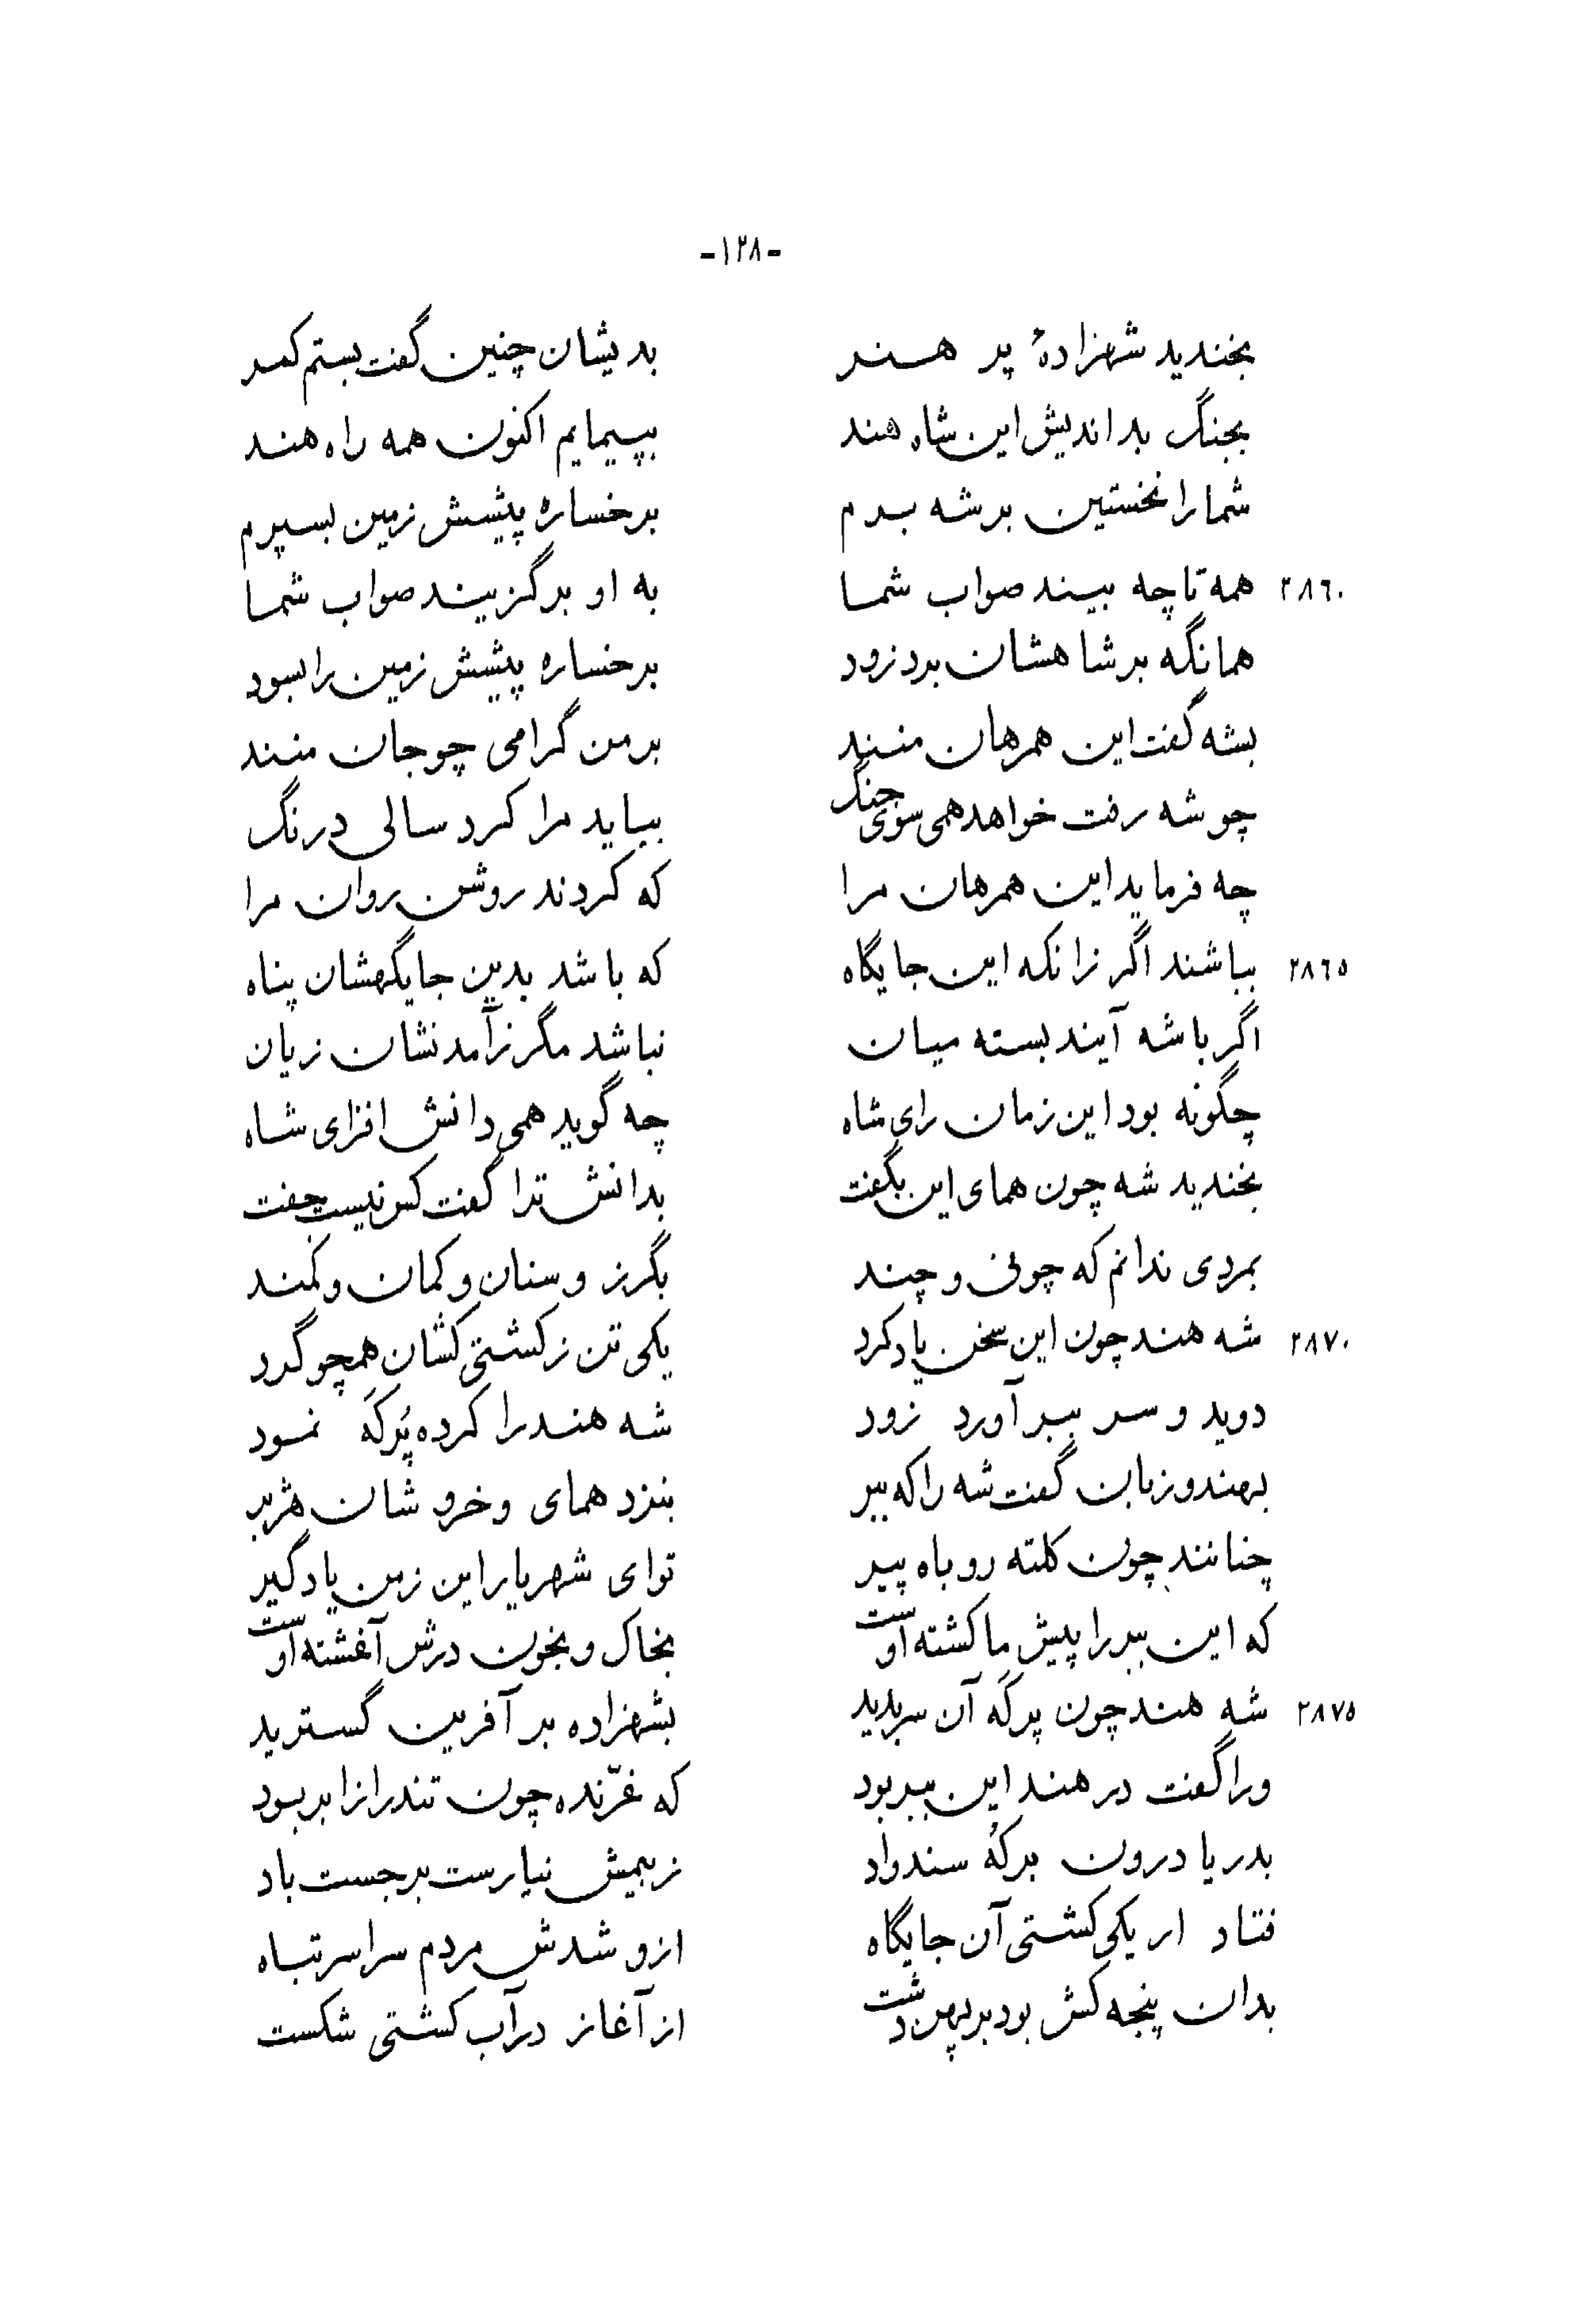 -۱۲۸-
بخندید شهزادهٔ پر هنر بدیشان چنین گفت بستم کمر
بجنگ بداندیش این شاه هند بپیمایم اکنون همه راه هند
شما را نخستین بر شه برم برخساره پیشش زمین بسپرم
۲۸۶۰ همه تا چه بیند صواب شما به او برگزیند صواب شما
همانگه بر شاهشان برد زود برخساره پیشش زمین را بسود
بشه گفت این همرهان منند بر من گرامی چو جان منند
چو شه رفت خواهد همی سوی جنگ بباید مرا کرد سالی درنگ
چه فرماید این همرهان مرا که کردند روشن روان مرا
۲۸۶۵ بباشند اگر زانکه این جایگاه که باشد بدین جایگهشان پناه
اگر با شه آیند بسته میان نباشد مگر زآمدنشان زیان
چگونه بود این زمان رای شاه چه گوید همی دانش افزای شاه
بخندید شه چون همای این بگفت بدانش ترا گفت کس نیست جفت
بمردی ندانم که چونی و چند بگرز و سنان و کمان و کمند
۲۸۷۰ شه هند چون این سخن یاد کرد یکی تن ز کشتی کشان همچو گرد
دوید و سر ببر آورد زود شه هند را کرده پَرکَه نمود
بهندو زبان گفت شه را که ببر بنزد همای و خروشان هژبر
چنانند چون کلته روباه پیر تو ای شهریار این زمن یادگیر
که این ببر را پیش ما کشته اوست بخاک و بخون درش آغشته اوست
۲۸۷۵ شه هند چون پرکَه آن سر بدید بشهزاده بر آفرین گسترید
ورا گفت در هند این ببر بود که غرّنده چون تندر از ابر بود
بدریا درون برکهٔ سندواد ز بیمش نیارست برجست باد
فتاد ار یکی کشتی آن جایگاه ازو شدش مردم سراسر تباه
بدان پنجه کش بود بر پهن دشت از آغاز در آب کشتی شکست